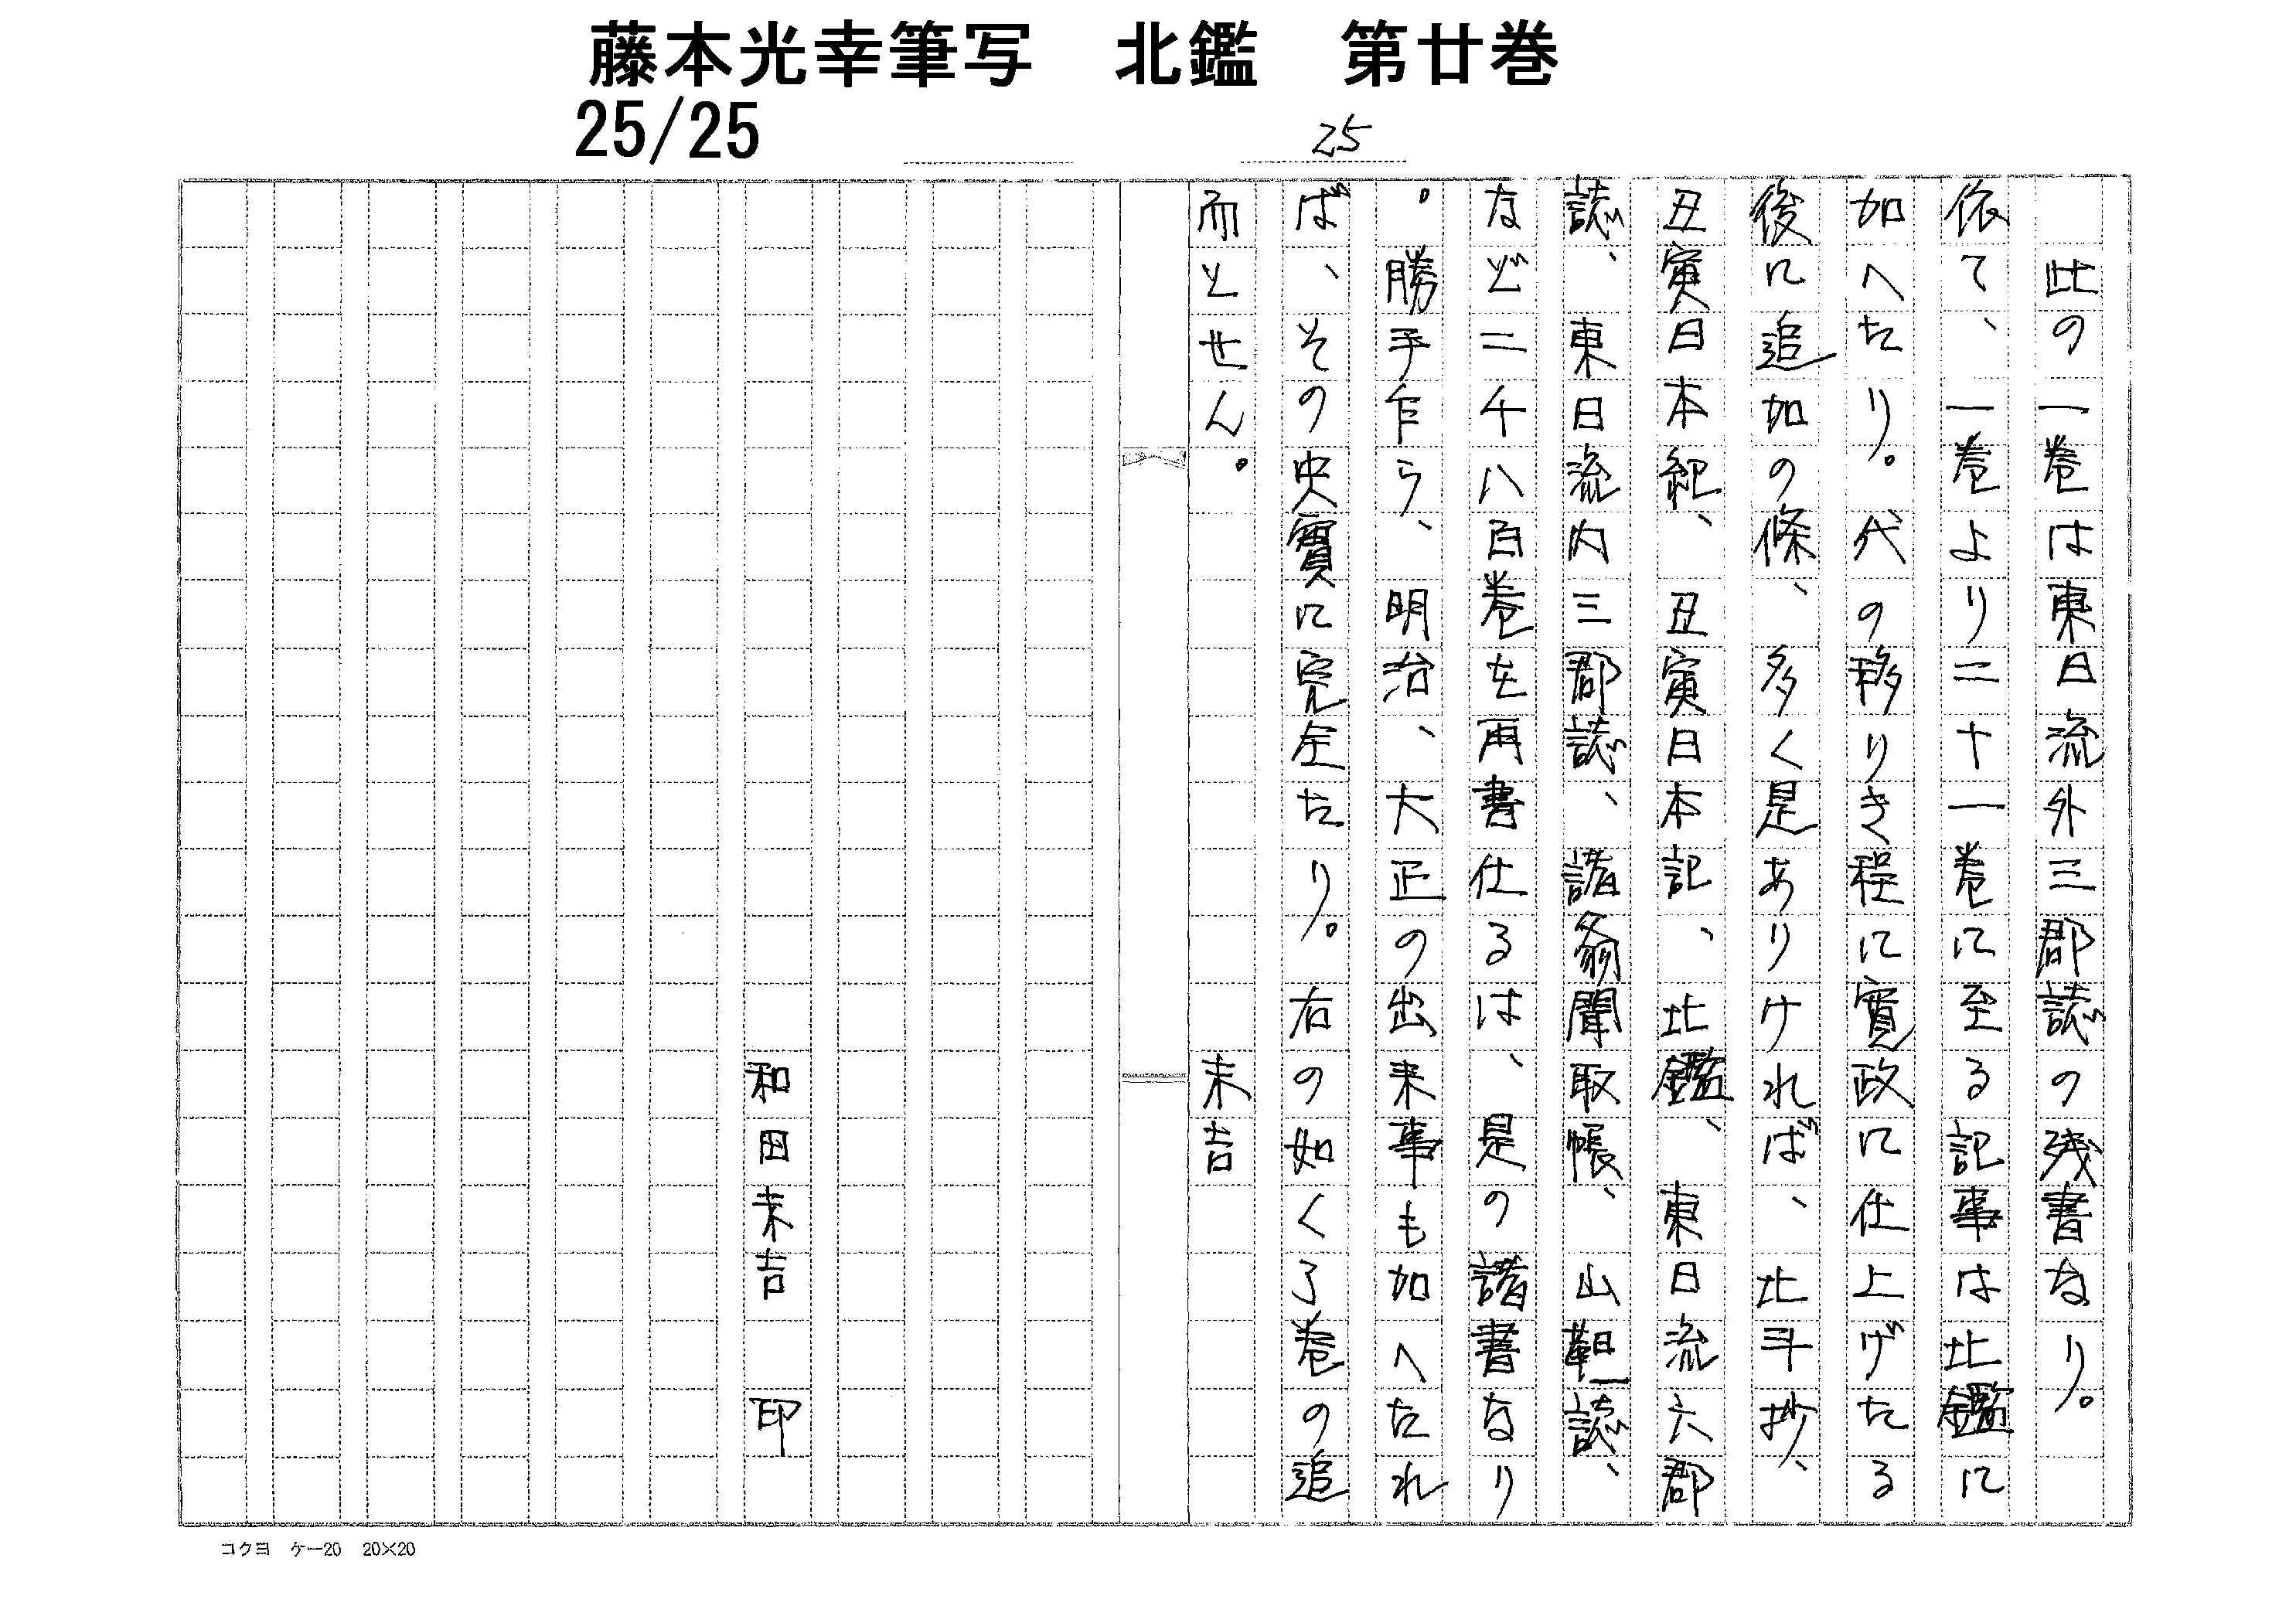 藤本光幸筆写　北鑑　第廿巻
25/25
25
此の一巻は東日流外三郡誌の残書なり。
依て、一巻より二十一巻に至る記事は北鑑に
加へたり。代の移りき程に寛政に仕上げたる
後に追加の條、多く是ありければ、北斗抄、
丑寅日本紀、丑寅日本記、北鑑、東日流六郡
誌、東日流内三郡誌、諸翁聞取帳、山靼誌、
など二千八百巻を再書仕るは、是の諸書なり
。勝手乍ら、明治、大正の出来事も加へたれ
ば、その史實に完全たり。右の如く了巻の追
而とせん。　末吉
和田末吉　印
コクヨ　ケー20　20×20